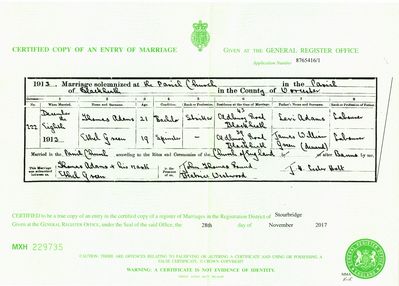 CERTIFIED COPY OF AN ENTRY OF MARRIAGE
GIVEN AT THE GENERAL REGISTER OFFICE
Application Number 8765416/1
1913. Marriage solemnized at the Parish Church in the Parish
of Blackheath in the County of Worcester
When Married. Name and Surname. Age. Condition. Rank or Profession. Residence at the time of Marriage. Father's Name and Surname. Rank or Profession of Father.
December the Eighth 1913
Thomas Adams 21 Bachelor Striker Oldbury Road Blackheath Levi Adams Labourer
Ethel Green 19 Spinster — Oldbury Road Blackheath James William Green (deceased) Labourer
Married in the Parish Church according to the Rites and Ceremonies of the Church of England by or after Banns by me,
This Marriage was solemnized between us,
Thomas Adams
Ethel Green
in the Presence of us,
John Thomas
J. H.
CERTIFIED to be a true copy of an entry in the certified copy of a register of Marriages in the Registration District of Stourbridge
Given at the GENERAL REGISTER OFFICE, under the Seal of the said Office, the 28th day of November 2017
MXH 229735
CAUTION: THERE ARE OFFENCES RELATING TO FALSIFYING OR ALTERING A CERTIFICATE AND USING OR POSSESSING A FALSE CERTIFICATE. © CROWN COPYRIGHT
WARNING: A CERTIFICATE IS NOT EVIDENCE OF IDENTITY.
GENERAL REGISTER OFFICE
ENGLAND